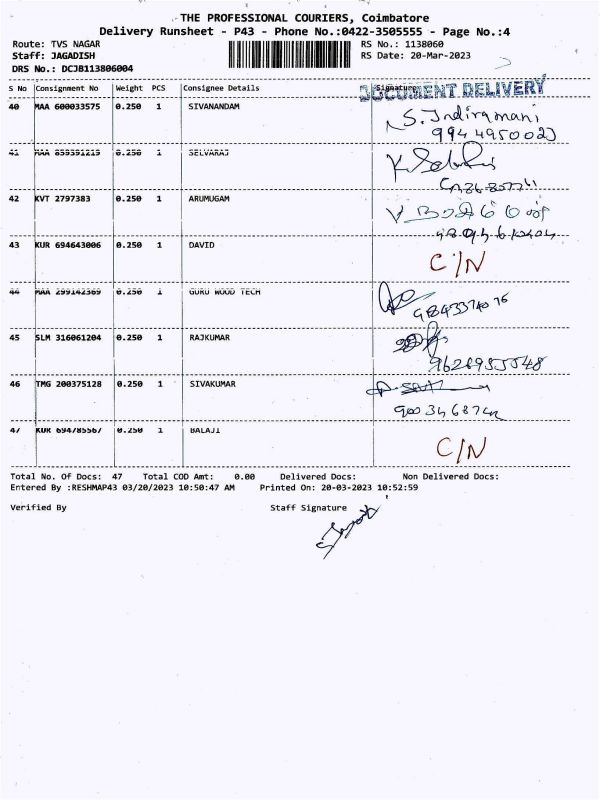 THE PROFESSIONAL COURIERS, Coimbatore
Delivery Runsheet - P43 - Phone No.:0422-3505555 - Page No.:4
Route: TVS NAGAR RS No.: 1138060
Staff: JAGADISH RS Date: 20-Mar-2023
DRS No.: DCJB113806004
S No Consignment No Weight PCS Consignee Details Signature
DOCUMENT DELIVERY
40 MAA 600033575 0.250 1 SIVANANDAM
S. Indiramani
41 MAA 859391219 0.250 1 SELVARAJ
42 KVT 2797383 0.250 1 ARUMUGAM
43 KUR 694643006 0.250 1 DAVID
C/N
44 MAA 299142369 0.250 1 GURU WOOD TECH
9843374076
45 SLM 316061204 0.250 1 RAJKUMAR
46 TMG 200375128 0.250 1 SIVAKUMAR
47 KUR 694785567 0.250 1 BALAJI
C/N
Total No. Of Docs: 47 Total COD Amt: 0.00 Delivered Docs: Non Delivered Docs:
Entered By :RESHMAP43 03/20/2023 10:50:47 AM Printed On: 20-03-2023 10:52:59
Verified By Staff Signature